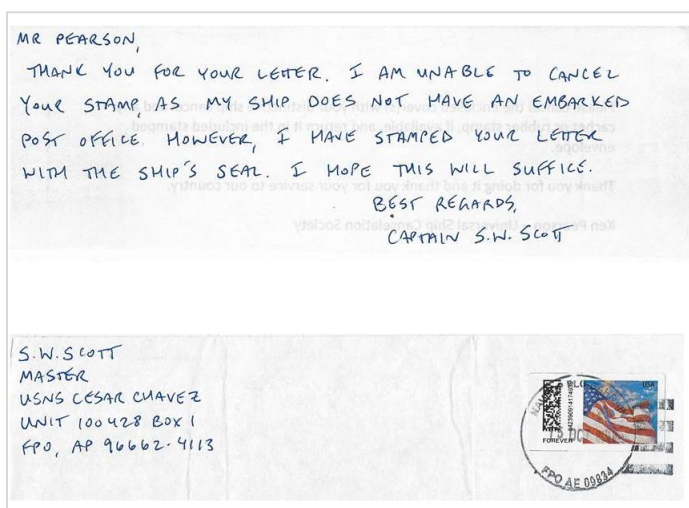 MR PEARSON,
THANK YOU FOR YOUR LETTER. I AM UNABLE TO CANCEL
YOUR STAMP, AS MY SHIP DOES NOT HAVE AN EMBARKED
POST OFFICE. HOWEVER, I HAVE STAMPED YOUR LETTER
WITH THE SHIP'S SEAL. I HOPE THIS WILL SUFFICE.
BEST REGARDS,
CAPTAIN S.W. SCOTT
S.W. SCOTT
MASTER
USNS CESAR CHAVEZ
UNIT 100428 BOX 1
FPO, AP 96662-4113
USA
FOREVER
FPO AE 09834